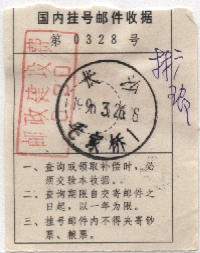 国内挂号邮件收据
第 0328 号
邮政建设费
长沙
一、查询或领取补偿时，必
须交验本收据。
二、查询期限自交寄邮件之
日起，以一年为限。
三、挂号邮件内不得夹寄钞
票、粮票。